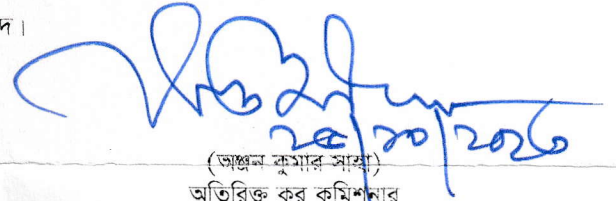 দ।
২৫/১০/২০২৩
(অঞ্জন কুমার সাহা)
অতিরিক্ত কর কমিশনার